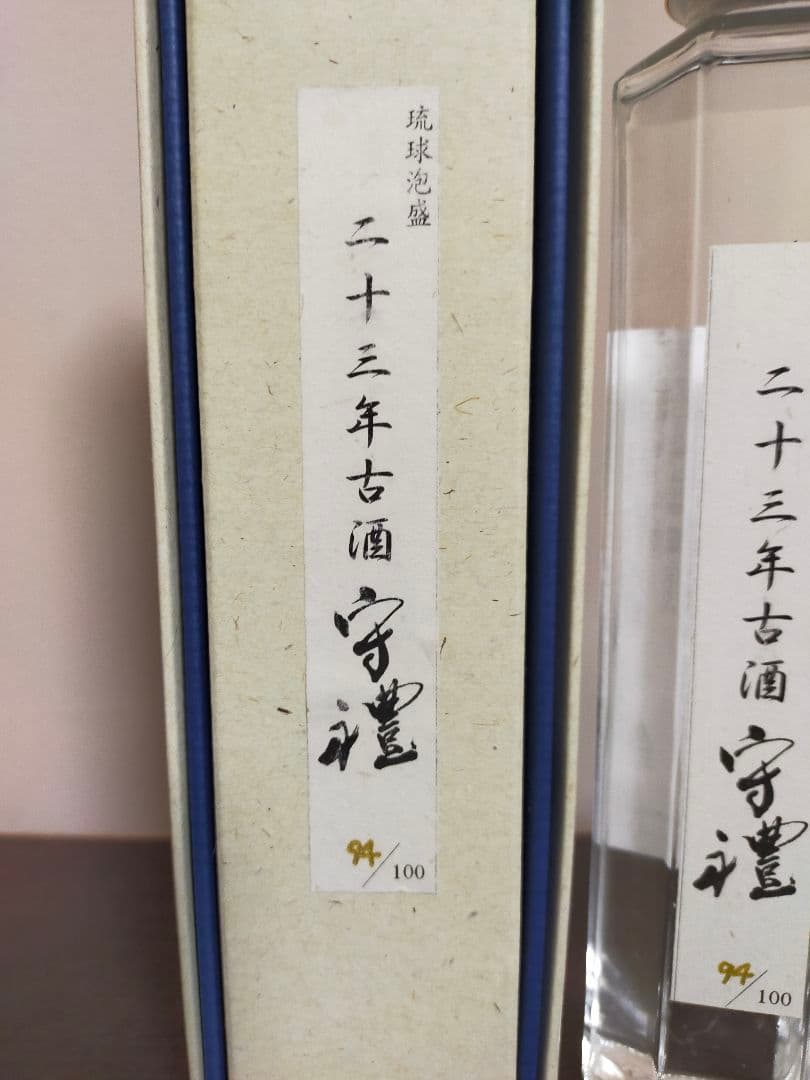 琉球泡盛
二十三年古酒
守禮
94/100
二十三年古酒
守禮
94/100